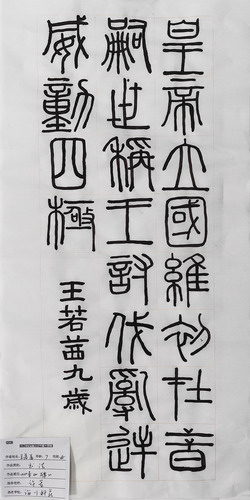 皇帝立國維初在昔
嗣世稱王討伐亂逆
威動四極
王若茜九歲